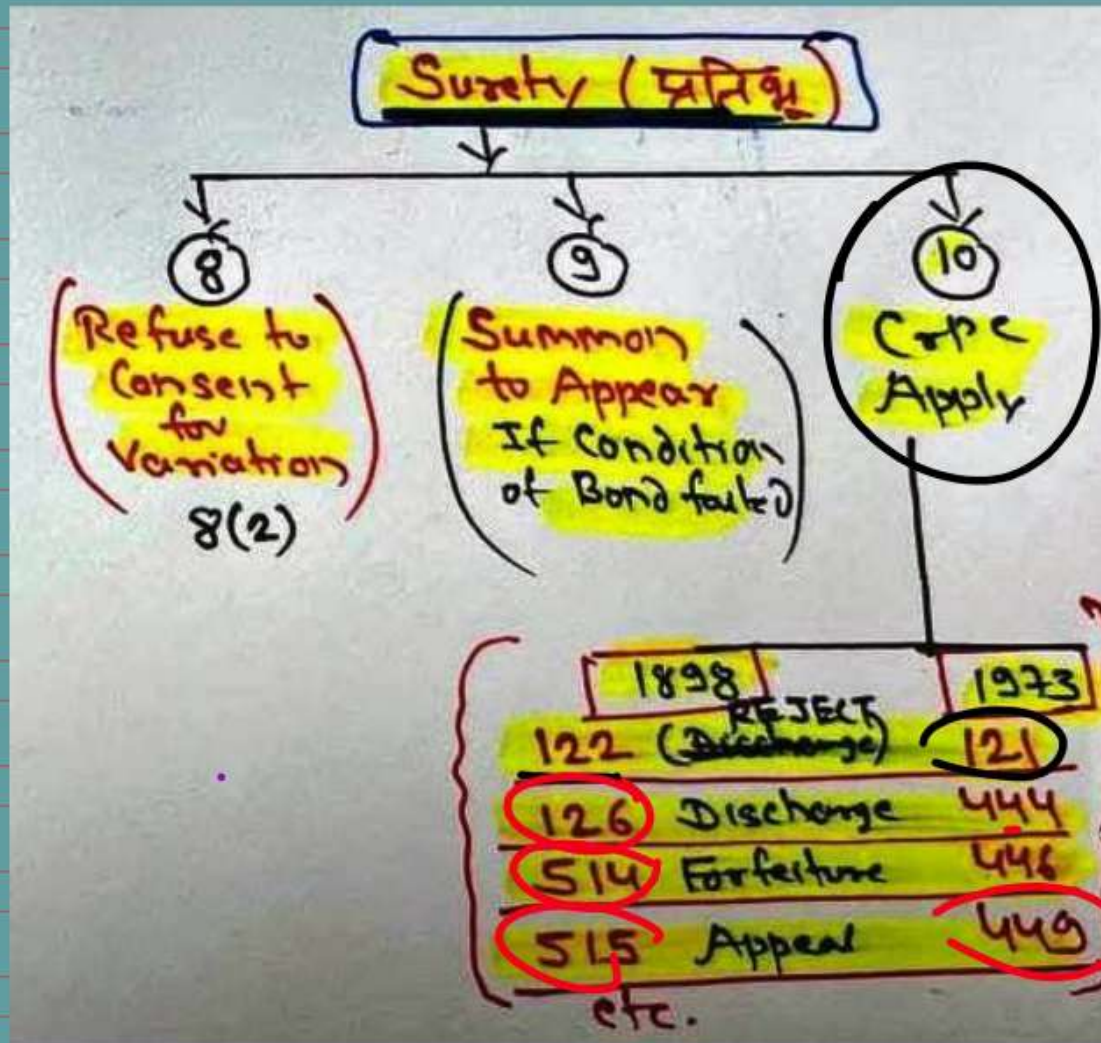 Surety (प्रतिभू)
8
Refuse to
Consent
for
Variation
8(2)
9
Summon
to Appear
If Condition
of Bond failed
10
CrPC
Apply
1898 1973
REJECT
122 (Discharge) 121
126 Discharge 444
514 Forfeiture 446
515 Appeal 449
etc.